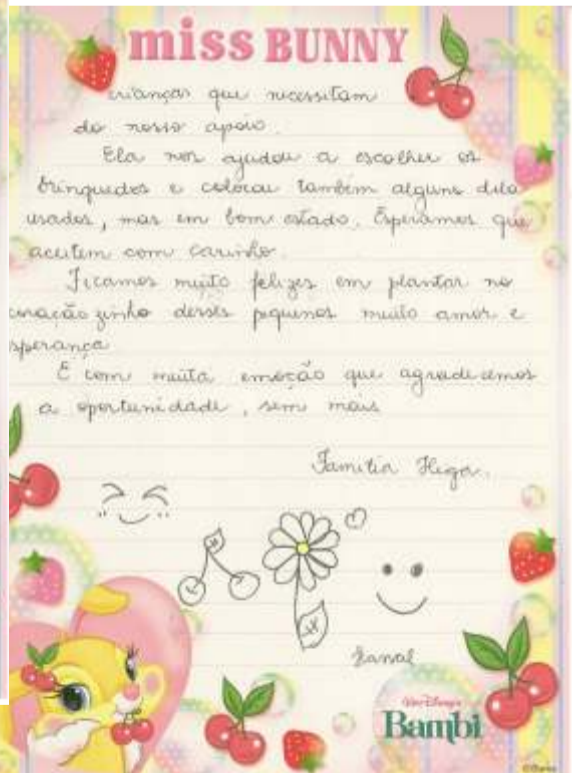 miss BUNNY
crianças que necessitam
do nosso apoio.
Ela nos ajudou a escolher os
brinquedos e colocou também alguns dela
usados, mas em bom estado. Esperamos que
aceitem com carinho.
Ficamos muito felizes em plantar no
coração zinho desses pequenos muito amor e
sperança
É com muita emoção que agradecemos
a oportunidade, sem mais
Família Higa.
Walt Disney's
Bambi
©Disney